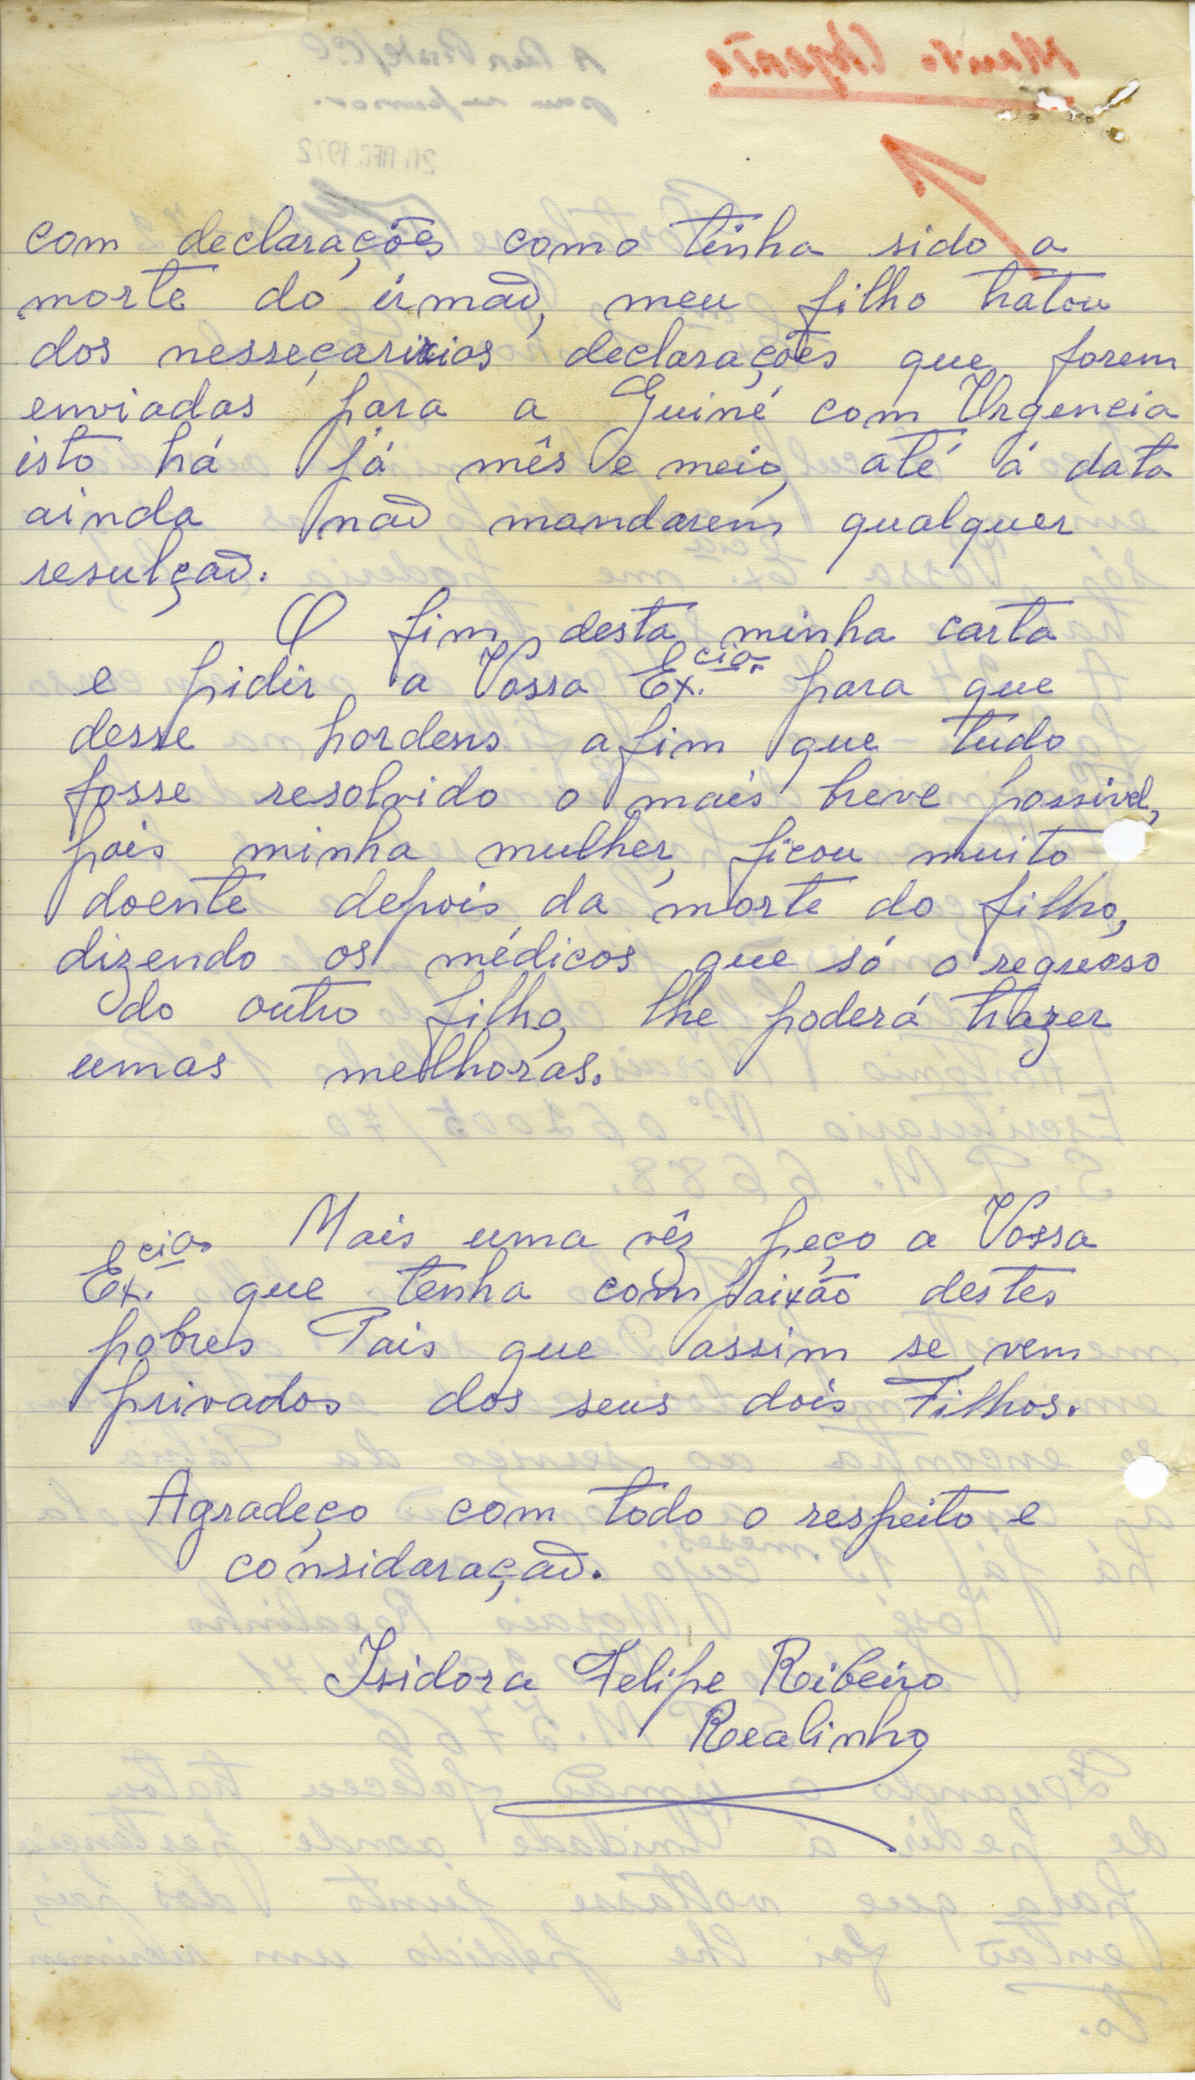 Muito Urgente
com declarações como tinha sido a
morte do irmaõ, meu filho tratou
dos nesseçarios declarações que forem
enviadas para a Guiné com Urgencia
isto há já mês e meio, até á data
ainda naõ mandarem qualquer
resulçaõ.
O fim desta minha carta
e pidir a Vossa Ex.cia para que
desse hordens afim que tudo
fosse resolvido o mais breve possivel,
pois minha mulher, ficou muito
doente depois da morte do filho,
dizendo os médicos que só o regresso
do outro filho, lhe poderá trazer
umas melhoras.
Mais uma vêz peço a Vossa
Ex.cia que tenha compaixão destes
pobres Pais que assim se vem
privados dos seus dois Filhos.
Agradeço com todo o respeito e
considaraçaõ.
Isidora Felipe Ribeiro
Realinho